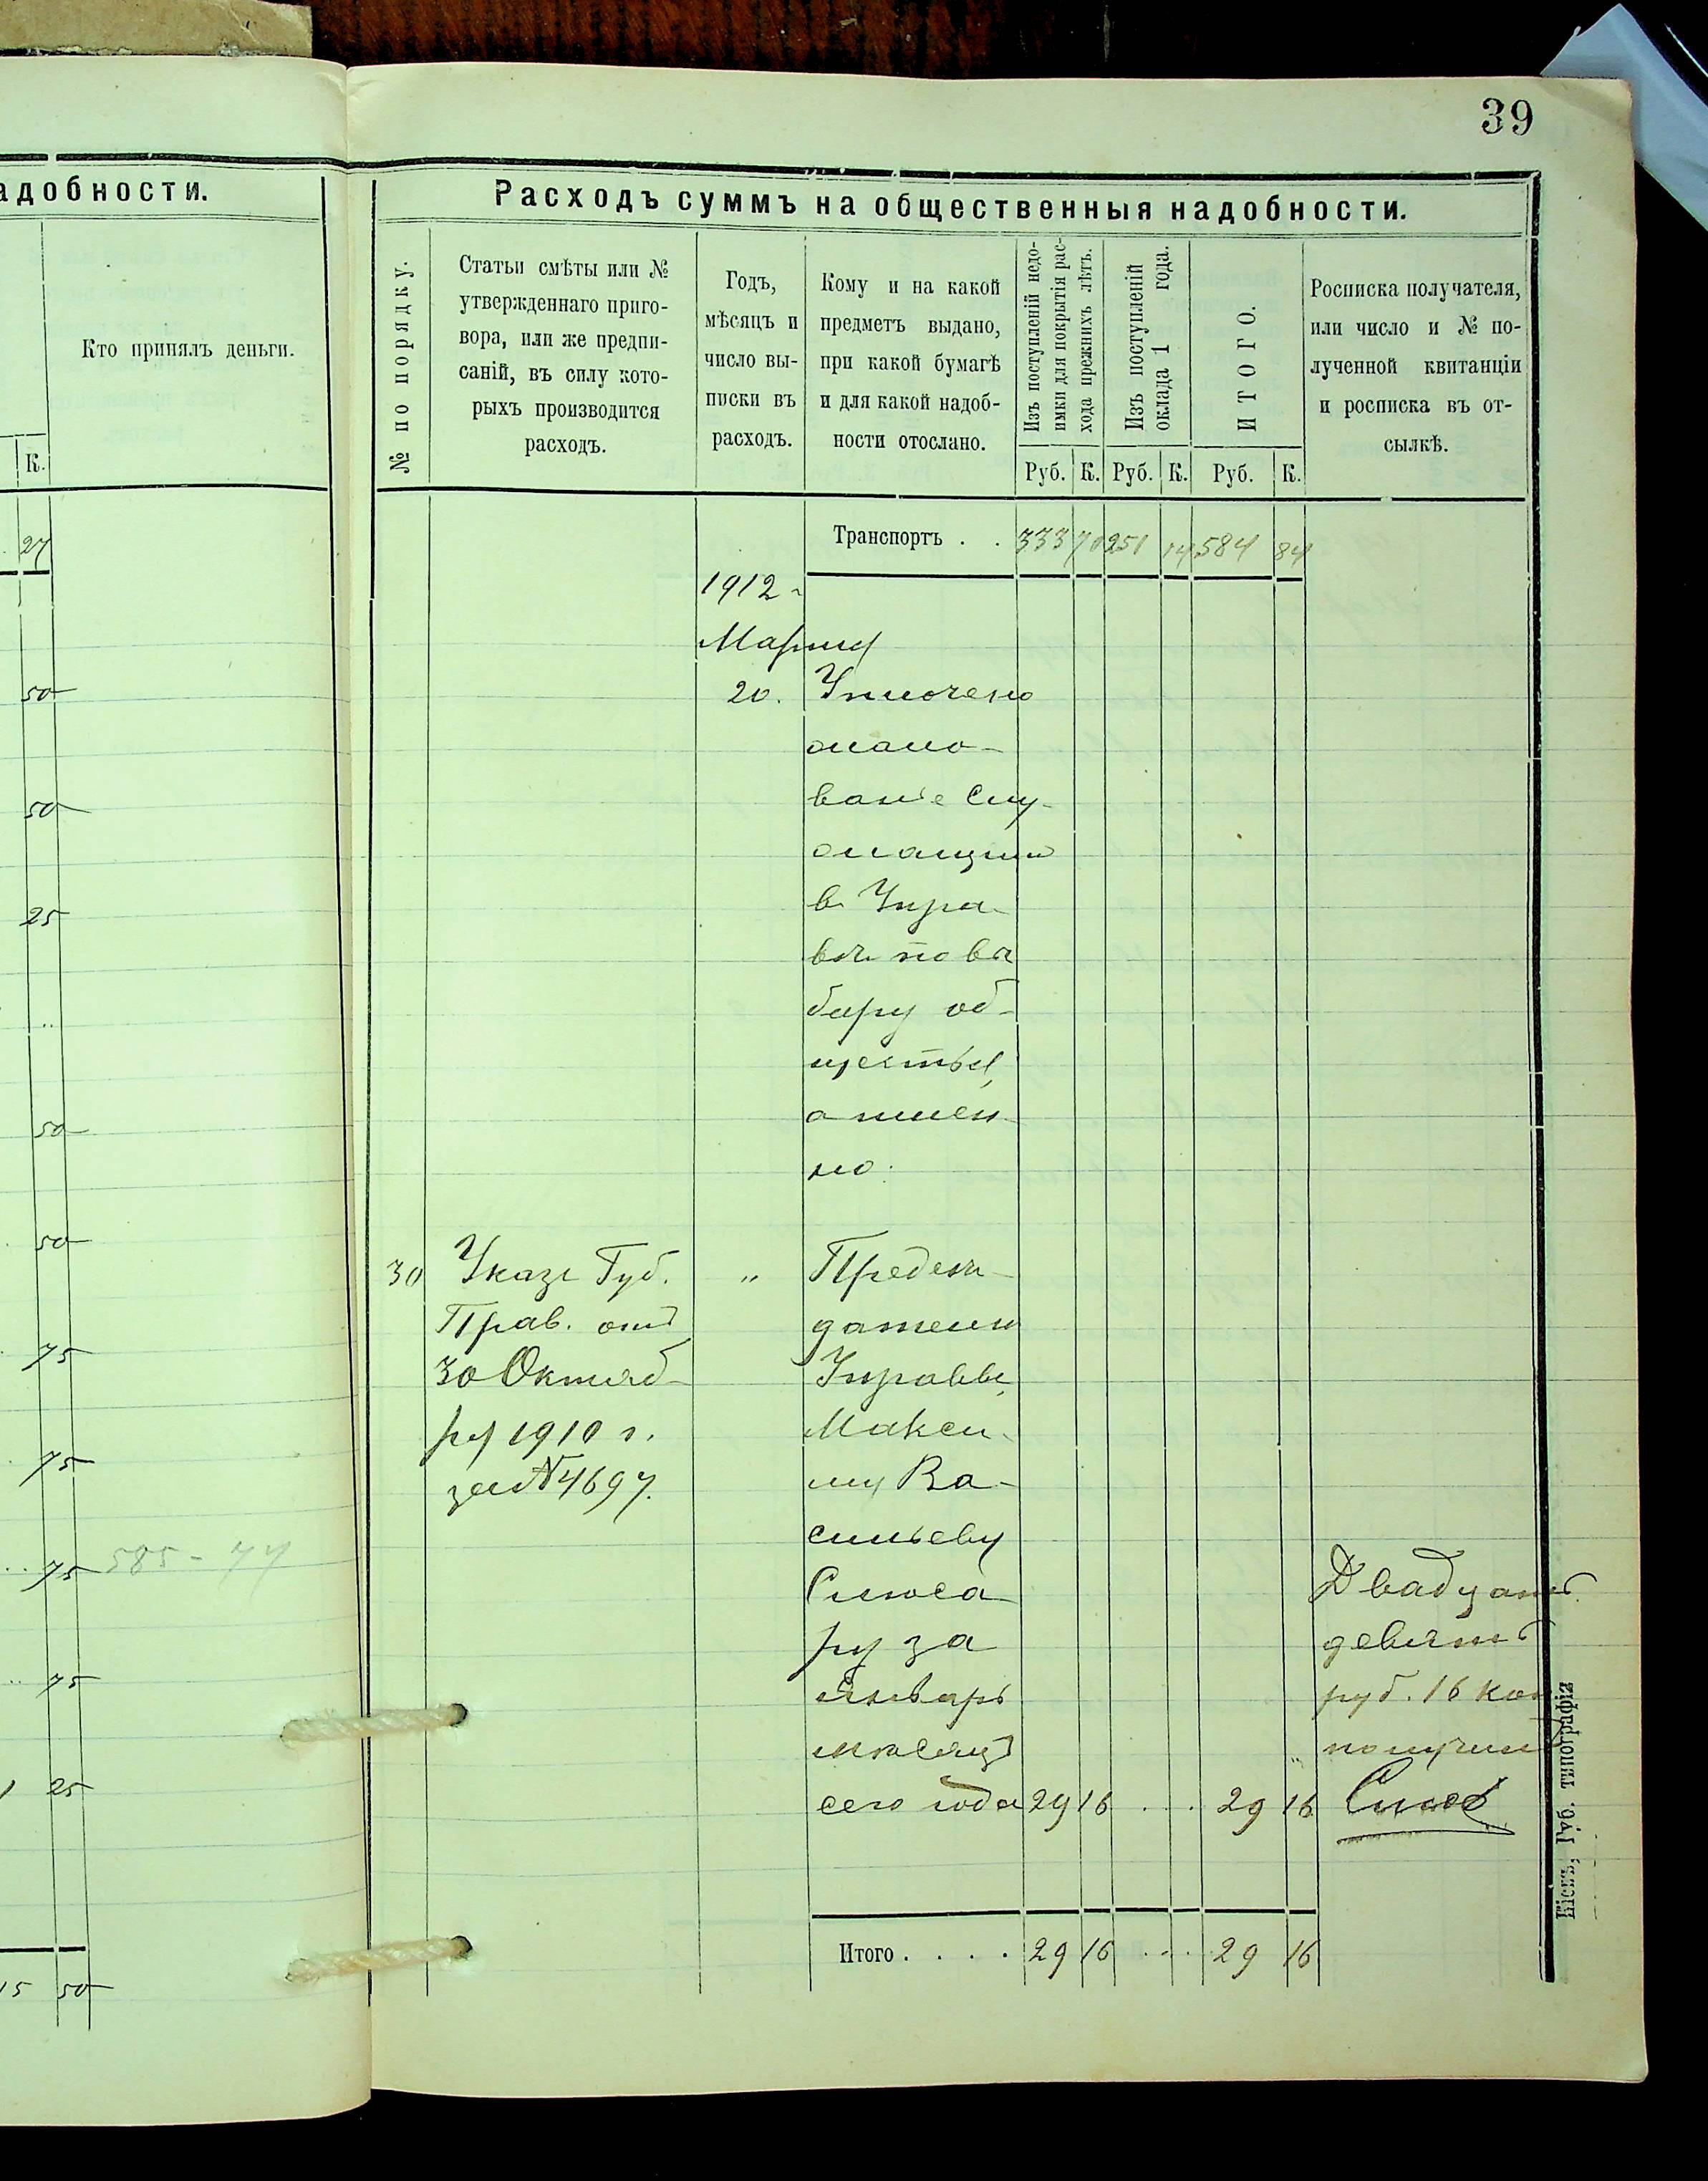 39
адобности.
Кто принялъ деньги.
К.
27
50
50
25
50
50
75
75
75 585 - 77
75
25
15 50
Расходъ суммъ на общественныя надобности.
№ по порядку.
Статьи смѣты или №
утвержденнаго приго-
вора, или же предпи-
саній, въ силу кото-
рыхъ производится
расходъ.
Годъ,
мѣсяцъ и
число вы-
писки въ
расходъ.
Кому и на какой
предметъ выдано,
при какой бумагѣ
и для какой надоб-
ности отослано.
Изъ поступленій недо-
имки для покрытія рас-
хода прежнихъ лѣтъ.
Изъ поступленій
оклада 1 года.
ИТОГО.
Росписка получателя,
или число и № по-
лученной квитанціи
и росписка въ от-
сылкѣ.
Руб. К. Руб. К. Руб. К.
Транспортъ . . 333 70 251 14 584 84
1912
Марта
20. Уплочено
жало-
ванье слу-
жащим
в Упра-
вѣ по вы
бору об-
щества,
а имен-
но:
30 Указъ Губ. " Предсѣ-
Прав. отъ дателю
30 Октяб- Управы,
ря 1910 г. Макси-
за № 4697. му Ва-
сильеву
Слюса-
ру за
Январь
мѣсяцъ
сего года 29 16 . . . 29 16
Двадцать
девять
руб. 16 коп
получилъ
Итого . . . . 29 16 . . . 29 16
Губ. типографія